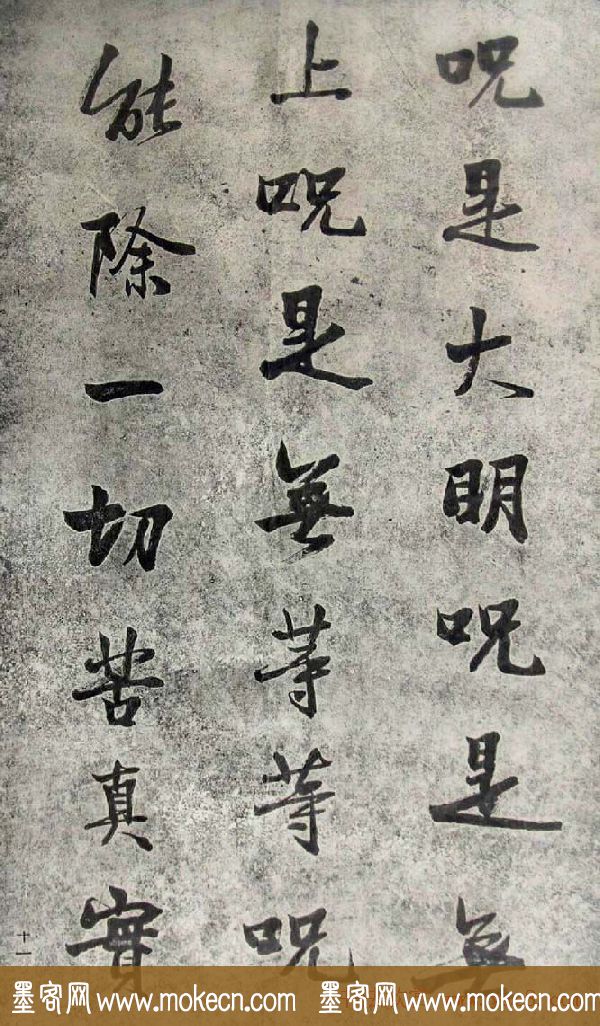 咒是大明咒是無
上咒是無等等咒
能除一切苦真實
十一
墨客网 www.mokecn.com 墨客网 www.mokecn.com